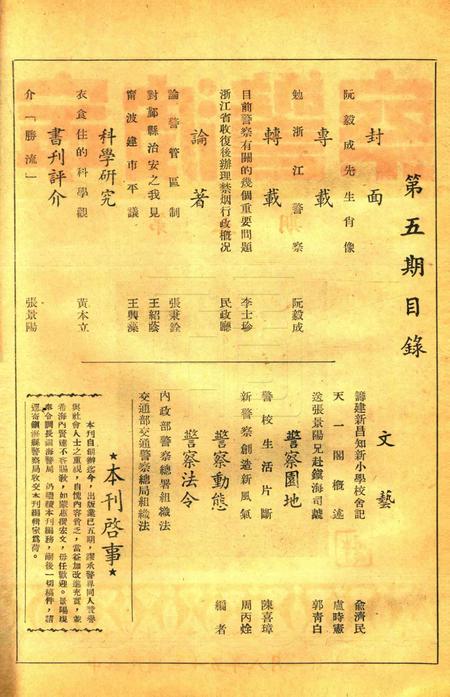 第五期目錄
封面
阮毅成先生肖像
專載
勉浙江警察 阮毅成
轉載
目前警察有關的幾個重要問題 李士珍
浙江省收復後辦理禁烟行政概況 民政廳
論著
論警管區制 張秉銓
對鄞縣治安之我見 王紹蔭
甯波建市平議 王興藻
科學研究
衣食住的科學觀 黃本立
書刊評介
介「勝流」 張景陽
文藝
籌建新昌知新小學校舍記 俞濟民
天一閣概述 盧時憲
送張景陽兄赴鎮海司獄 郭青白
警察園地
警校生活片斷 陳喜璋
新警察創造新風氣 周丙炷
警察動態 編者
警察法令
內政部警察總署組織法
交通部交通警察總局組織法
★本刊啓事★
本刊自創辦迄今，出版業已五期，謬承警界同人贊譽
與社會人士之重視，自愧內容貧乏，當益加改進充實，並
希海內賢達不吝賜敎，如蒙惠撰宏文，毋任歡迎。景陽現
奉令調長鎮海警局，仍繼續本刊編務，嗣後一切稿件，請
逕寄鎮海縣警察局收交本刊編輯室爲荷。